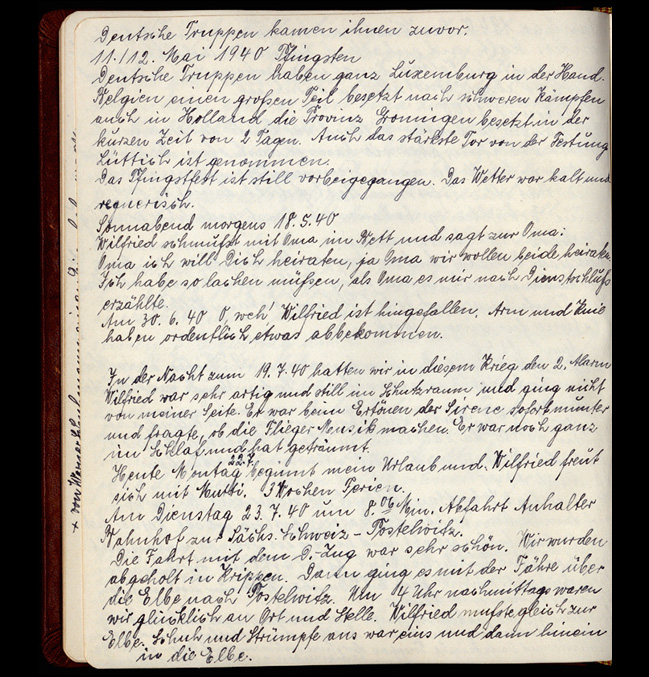 Deutsche Truppen kamen ihnen zuvor.
11./12. Mai 1940 Pfingsten
Deutsche Truppen haben ganz Luxemburg in der Hand.
Belgien einen großen Teil besetzt nach schweren Kämpfen
auch in Holland die Provinz Groningen besetzt in der
kurzen Zeit von 2 Tagen. Auch das stärkste Tor von der Festung
Lüttich ist genommen.
Das Pfingstfest ist still vorbeigegangen. Das Wetter war kalt und
regnerisch.
Sonnabend morgens 18.5.40
Wilfried schmust mit Oma im Bett und sagt zur Oma:
Oma ich will Dich heiraten, ja Oma wir wollen beide heiraten.
Ich habe so lachen müßen, als Oma es mir nach Dienstschluß
erzählte.
Am 30.6.40 O, weh! Wilfried ist hingefallen. Arm und Knie
haben ordentlich etwas abbekommen.
In der Nacht zum 19.7.40 hatten wir in diesem Krieg den 2. Alarm
Wilfried war sehr artig und still im Schutzraum und ging nicht
von meiner Seite. Er war beim Ertönen der Sirene sofort munter
und fragte, ob die Flieger Musik machen. Er war noch ganz
im Schlaf und hat geträumt.
Heute Montag 22.7. beginnt mein Urlaub und Wilfried freut
sich mit Mutti. 3 Wochen Ferien.
Am Dienstag 23.7.40 um 8.06 Min. Abfahrt Anhalter
Bahnhof zur Sächs. Schweiz - Postelwitz.
Die Fahrt mit dem D.-Zug war sehr schön. Wir wurden
abgeholt in Krippen. Dann ging es mit der Fähre über
die Elbe nach Postelwitz. Um 14 Uhr nachmittags waren
wir glücklich an Ort und Stelle. Wilfried mußte gleich zur
Elbe. Schuh und Strümpfe aus war eins und dann hinein
in die Elbe.